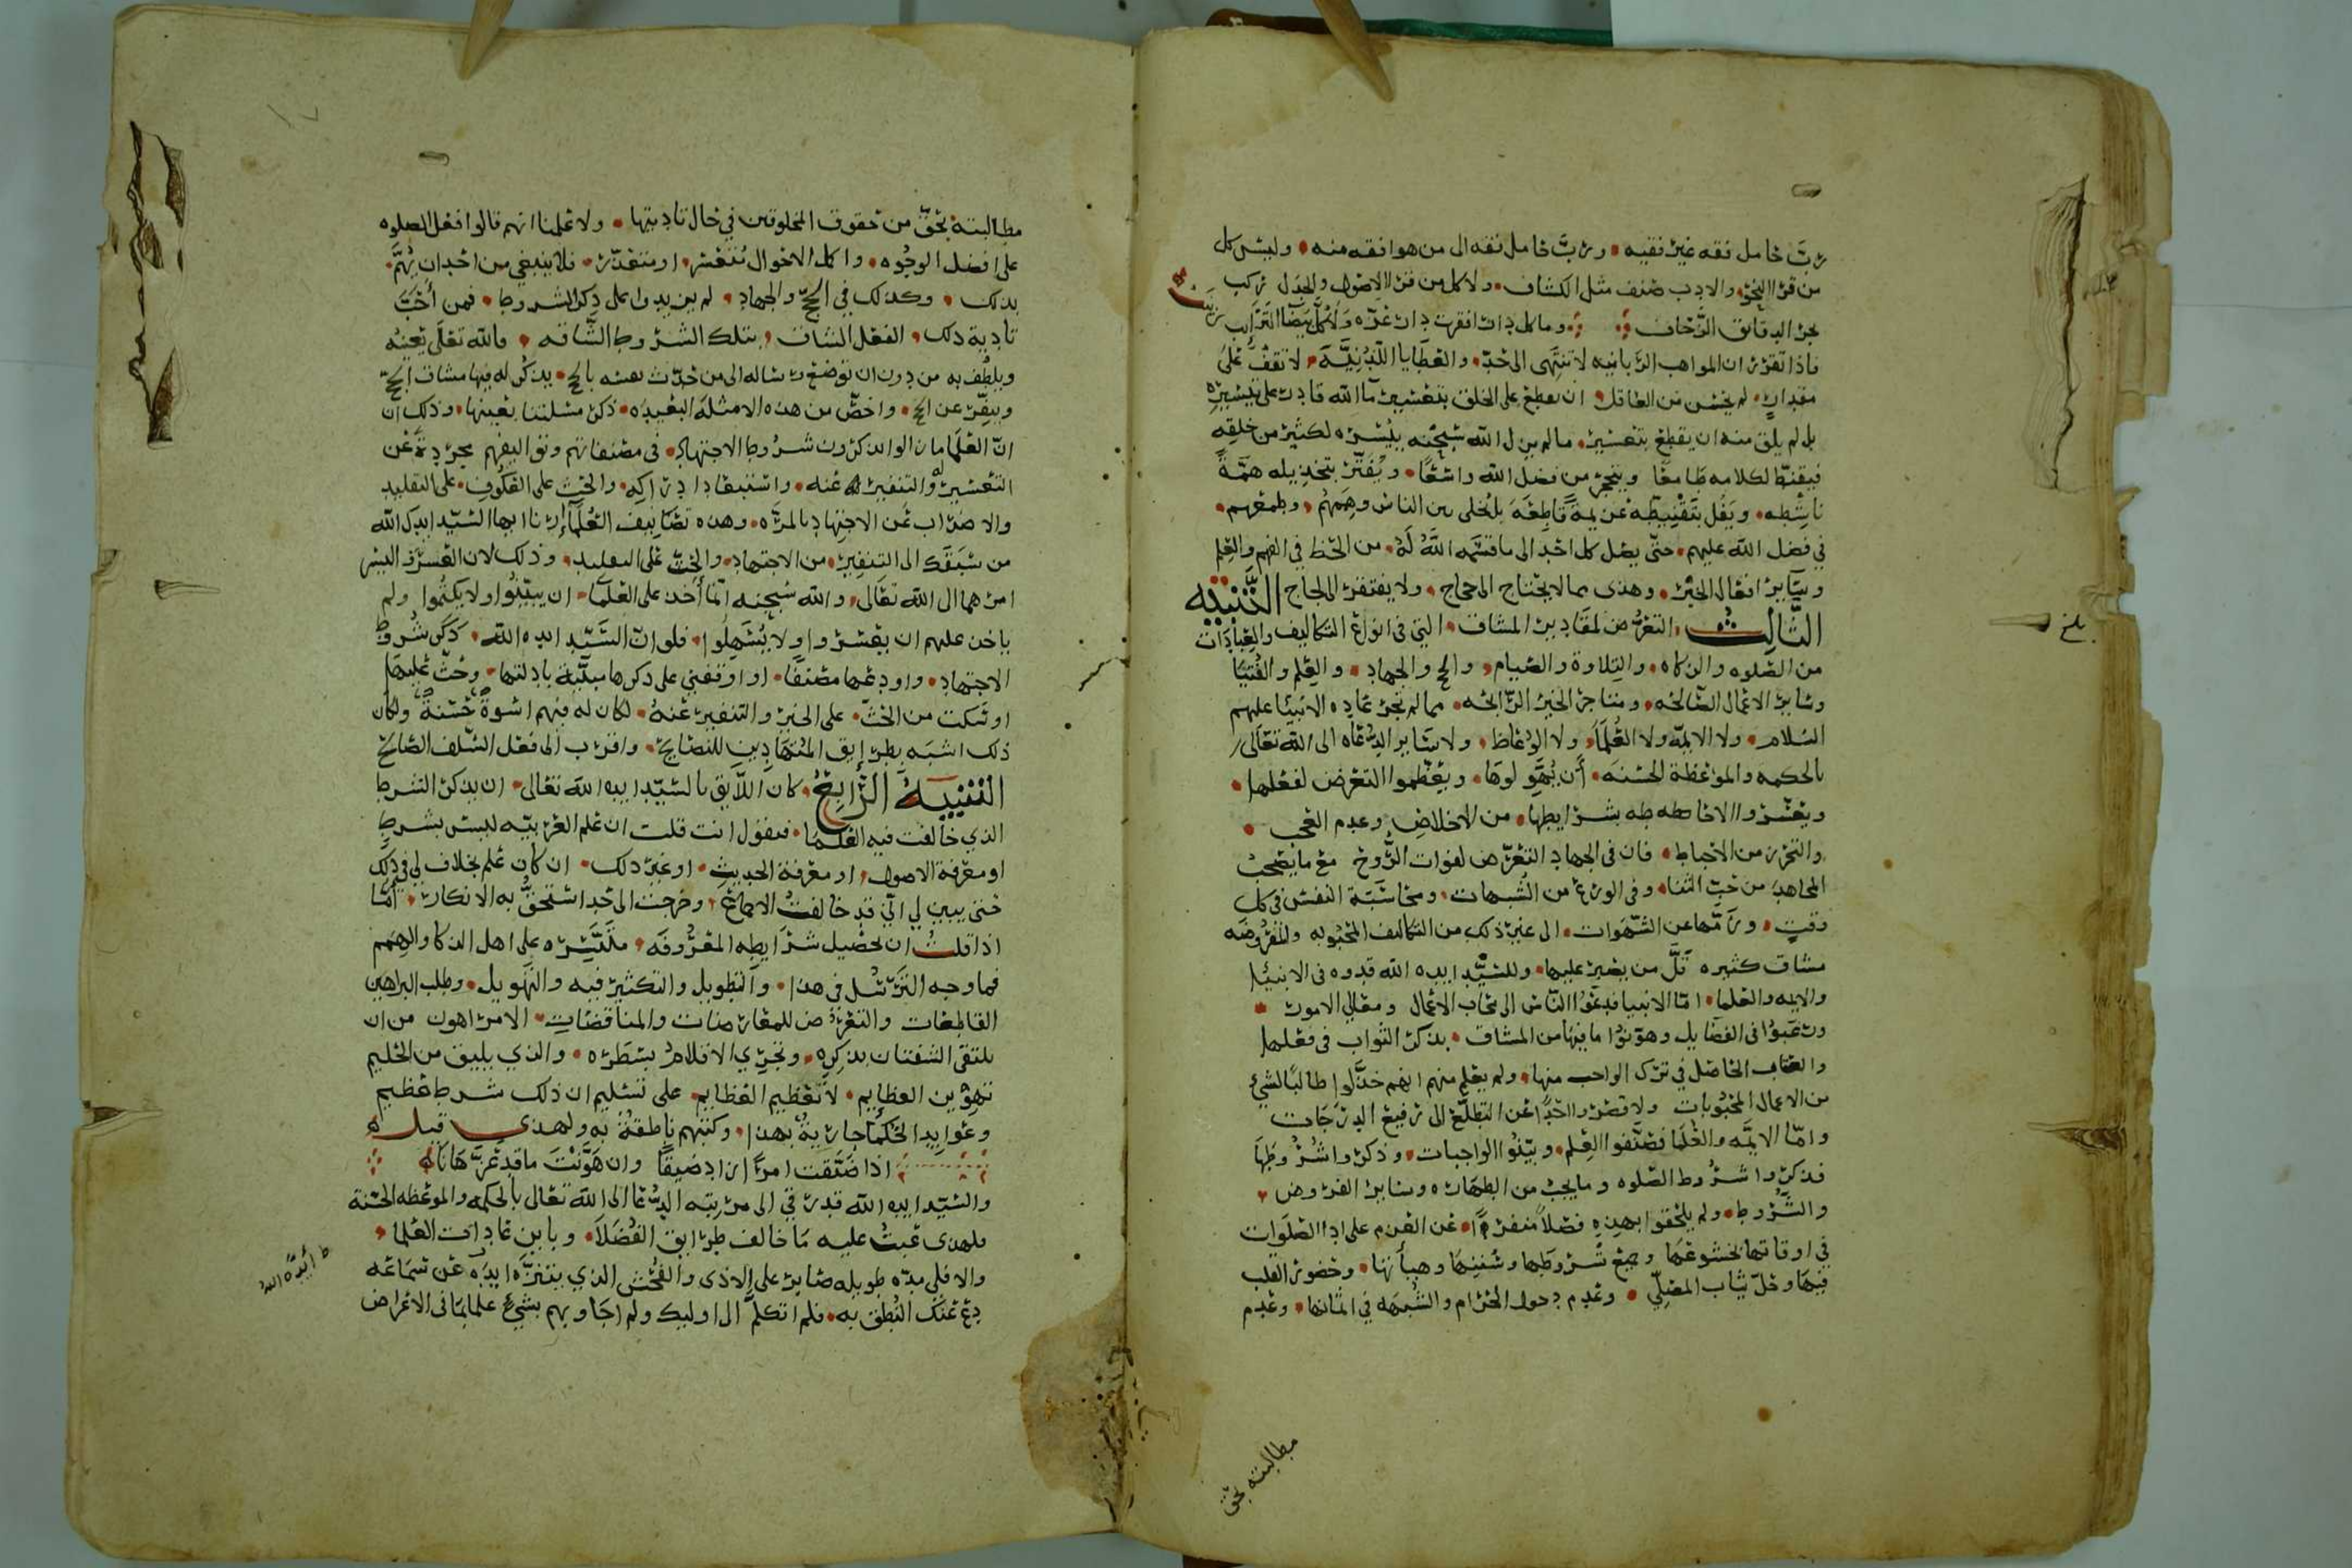 رب حامل فقه غير فقيه • ورب حامل فقه الى من هو افقه منه • وليس كل
من قرا النحو والادب صنف مثل الكشاف • ولا كل من قرا الاصول والجدل ركب
بحر الدقايق الرجاف وما كل دار اقفرت دارت عزه ولا كل بيضا الترايب زينب
فاذا تقرر ان المواهب الربانيه لا تنتهى الى حد • والعطايا اللدنيه • لا تقف على
مقدار • لم يحسن من العاقل • ان يقطع على الخلق بتعسير ما الله قادر على تيسيره
بل لم يلق منه ان يقطع بتعسير • ما لم يزل الله سبحنه ييسره لكثير من خلقه
فيقنط لكلامه طامعا ويتحجر من فضل الله واسعا • ويفتر بتخذيله همة
ناشطه • ويفل بتقنيطه عزيمة قاطعه بل يخلى بين الناس وهممهم • وطمعهم •
في فضل الله عليهم • حتى يصل كل احد الى ما قسمه الله له • من الحظ في الفهم والعلم
وساير افعال الخير • وهذى مما لا يحتاج الى حجاج • ولا يفتقر الى لجاج التنبيه
الثالث • التعرض لمقادير المشاق • التي في انواع التكاليف والعبادات
من الصلوه والزكاه • والتلاوة والصيام • والحج والجهاد • والعلم والفتيا
وساير الاعمال الصالحه • ومتاجر الخير الرابحه • مما لم تجر عاده الانبيا عليهم
السلام • ولا الايمه ولا العلما • ولا الوعاظ • ولا ساير الدعاه الى الله تعالى
بالحكمه والموعظة الحسنه • أن يهولوها • ويعظموا التعرض لفعلها •
ويعسروا الاحاطه بشرايطها • من الاخلاص وعدم العجب •
والتحرز من الاحباط • فان في الجهاد التعرض لفوات الروح مع ما يصحب
المجاهد من حب الثنا • وفي الورع من الشبهات • ومحاسبة النفس في كل
وقت • وزمها عن الشهوات • الى غير ذلك من التكاليف المحبوبه والمفروضه
مشاق كثيره قل من يصبر عليها • وللسيد ايده الله قدوه في الانبيا
والايمه والعلما • اما الانبيا فدعوا الناس الى محاب الاعمال ومعالي الامور •
ورغبوا في الفضايل وهونوا ما فيها من المشاق • بذكر الثواب في فعلها
والعقاب الحاصل في ترك الواجب منها • ولم يعلم منهم انهم خذلوا طالبا لشي
من الاعمال المحبوبات ولا قصروا احدا عن التطلع الى ترفيع الدرجات
واما الايمه والعلما فصنفوا العلم • وبينوا الواجبات • وذكروا شروطها
فذكروا شروط الصلوه وما يجب من الطهاره وساير الفروض •
والشروط • ولم يلحقوا بهذه فصلا منفردا • عن العزم على ادا الصلوات
في اوقاتها بخشوعها وجميع شروطها وسننها وهيأتها • وحضور القلب
فيها وحل ثياب المصلي • وعدم دخول الحرام والشبهه في اثمانها • وعدم
مطالبته بحق
بلغ
مطالبته بحق من حقوق المخلوقين في حال تاديتها • ولا علمنا انهم قالوا فعل الصلوه
على افضل الوجوه • واكمل الاحوال متعسر • او متعذر • فلا ينبغي من احد ان يهم •
بذلك • وكذلك في الحج والجهاد • لم يزيدوا على ذكر الشروط • فمن أحب
تادية ذلك • الفعل الشاق • بتلك الشروط الشاقه • فالله تعلى يعينه
ويلطف به من دون ان توضع رساله الى من حدث نفسه بالحج • يذكر له فيها مشاق الحج
وينفر عن الحج • واخص من هذه الامثله البعيده • ذكر مسلتنا بعينها • وذلك ان
ان العلما ما زالوا يذكرون شروط الاجتهاد • في مصنفاتهم وتواليفهم مجردة عن
التعسير والتنفير عنه • واستبعاد ادراكه • والحث على العكوف • على التقليد
والاضراب عن الاجتهاد بالمره • وهذه تصانيف العلما ارنا ايها السيد ايدك الله
من سبقك الى التنفير • من الاجتهاد • والحث على التقليد • وذلك لان العسر واليسر
امرهما الى الله تعالى • والله سبحنه انما أخذ على العلما • ان يبينوا ولا يكتموا ولم
ياخذ عليهم ان يعسروا ولا يسهلوا • فلو ان السيد ايده الله • ذكر شروط
الاجتهاد • واودعها مصنفا • او اوقفني على ذكرها مبينة بادلتها • وحث عليها
او سكت من الحث • على الخير والتنفير عنه • لكان له فيهم اسوة حسنة ولكان
ذلك اشبه بطرايق المتهادين للنصايح • واقرب الى فعل السلف الصالح
التنبيه الرابع • كان اللايق بالسيد ايده الله تعالى • ان يذكر الشرط
الذي خالفت فيه العلما • فيقول انت قلت ان علم العربيه ليس بشرط
او معرفة الاصول • او معرفة الحديث • او غير ذلك • ان كان علم بخلاف لي في ذلك
حتى يبين لي اني قد خالفت الاجماع • وخرجت الى حد استحق به الانكار • أما
اذا قلت ان تحصيل شرايطه المعروفه • متيسره على اهل الذكا والهمم
فما وجه الترسل في هذا • والتطويل والتكثير فيه والتهويل • وطلب البراهين
القاطعات والتعرض للمعارضات والمناقضات • الامر اهون من ان
تلتقى الشفتان بذكره • وتجري الاقلام بسطره • والذي يليق من الحليم
تهوين العظايم • لا تعظيم العظايم • على تسليم ان ذلك شرط عظيم
وعوايد الحكما جارية بهذا • وكتبهم ناطقة به ولهذى قيل
اذا ضيقت امرا زاد ضيقا وان هونت ما قد عز هانا
والسيد ايده الله قد رقي الى مرتبه الدعا الى الله تعالى بالحكمه والموعظه الحسنة
فلهذى عبت عليه ما خالف طرايق الفضلا • وباين عادات العلما •
والا فلي مده طويله صابر على الاذى والفحش الذي يتنزه ايده عن سماعه
دع عنك النطق به • فلم اتكلم الى اوليك ولم اجاوبهم بشي علما بما في الاعراض
ط أيده الله